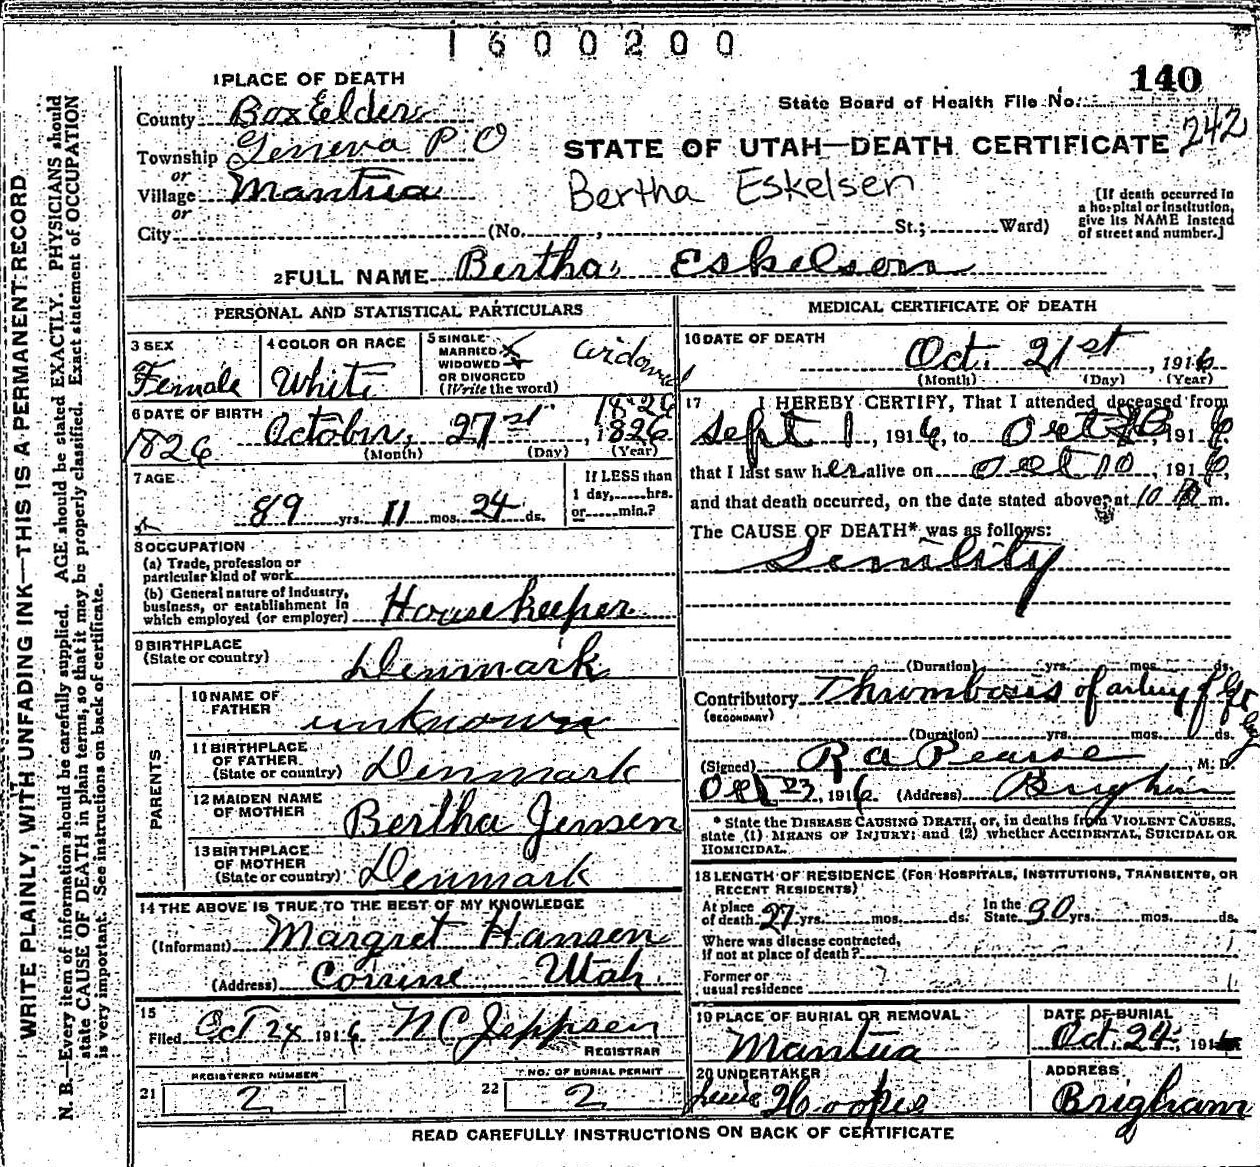 1600200
140
1 PLACE OF DEATH
State Board of Health File No.
242
County Box Elder
Township Geneva P.O
or
Village Mantua
or
City (No. , St.; Ward)
STATE OF UTAH—DEATH CERTIFICATE
Bertha Eskelsen
[If death occurred in
a hospital or institution,
give its NAME instead
of street and number.]
2 FULL NAME Bertha Eskelsen
PERSONAL AND STATISTICAL PARTICULARS
3 SEX
Female
4 COLOR OR RACE
White
5 SINGLE
MARRIED
WIDOWED
OR DIVORCED
(Write the word)
widowed
6 DATE OF BIRTH
1826 October, 27st, 1826
1826
(Month) (Day) (Year)
7 AGE
89 yrs. 11 mos. 24 ds.
If LESS than
1 day, hrs.
or min.?
8 OCCUPATION
(a) Trade, profession or
particular kind of work
(b) General nature of Industry,
business, or establishment in
which employed (or employer) Housekeeper
9 BIRTHPLACE
(State or country) Denmark
PARENTS
10 NAME OF
FATHER unknown
11 BIRTHPLACE
OF FATHER
(State or country) Denmark
12 MAIDEN NAME
OF MOTHER Bertha Jensen
13 BIRTHPLACE
OF MOTHER
(State or country) Denmark
14 THE ABOVE IS TRUE TO THE BEST OF MY KNOWLEDGE
(Informant) Margret Hansen
(Address) Corinne Utah
15
Filed Oct 24 1916 N C Jeppsen
REGISTRAR
21 REGISTERED NUMBER
2
22 NO. OF BURIAL PERMIT
2
MEDICAL CERTIFICATE OF DEATH
16 DATE OF DEATH
Oct. 21st, 1916
(Month) (Day) (Year)
17 I HEREBY CERTIFY, That I attended deceased from
Sept 1, 1916, to Oct 1916,
that I last saw her alive on Oct 10, 1916,
and that death occurred, on the date stated above, at 10 m.
The CAUSE OF DEATH* was as follows:
Senility
(Duration) yrs. mos. ds.
Contributory Thrombosis of artery of leg
(SECONDARY)
(Duration) yrs. mos. ds.
(Signed) R A Pearse, M. D.
Oct 23, 1916 (Address) Brigham
* State the DISEASE CAUSING DEATH, or, in deaths from VIOLENT CAUSES,
state (1) MEANS OF INJURY; and (2) whether ACCIDENTAL, SUICIDAL OR
HOMICIDAL.
18 LENGTH OF RESIDENCE (FOR HOSPITALS, INSTITUTIONS, TRANSIENTS, OR
RECENT RESIDENTS)
At place
of death 27 yrs. mos. ds. In the
State 30 yrs. mos. ds.
Where was disease contracted,
if not at place of death?
Former or
usual residence ?
19 PLACE OF BURIAL OR REMOVAL
Mantua
DATE OF BURIAL
Oct. 24, 191
20 UNDERTAKER
Hoopes
ADDRESS
Brigham
READ CAREFULLY INSTRUCTIONS ON BACK OF CERTIFICATE
WRITE PLAINLY, WITH UNFADING INK—THIS IS A PERMANENT RECORD
N. B.—Every item of information should be carefully supplied. AGE should be stated EXACTLY. PHYSICIANS should
state CAUSE OF DEATH in plain terms, so that it may be properly classified. Exact statement of OCCUPATION
is very important. See instructions on back of certificate.